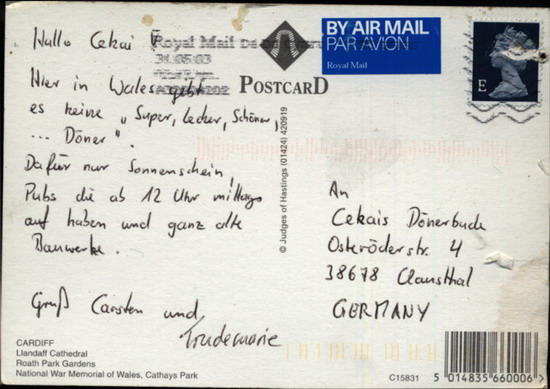 Hallo Cekai !
Royal Mail
31.05.03
BY AIR MAIL
PAR AVION
Royal Mail
E
POSTCARD
Hier in Wales gibt
es keine „Super, Lecker, Schöner,
... Döner".
Dafür nur Sonnenschein,
Pubs die ab 12 Uhr mittags
auf haben und ganz alte
Bauwerke.
Gruß Carsten und
Trudemarie
© Judges of Hastings (01424) 420919
An
Cekais Dönerbude
Osteröderstr. 4
38678 Clausthal
GERMANY
CARDIFF
Llandaff Cathedral
Roath Park Gardens
National War Memorial of Wales, Cathays Park
C15831
5 014835 660006